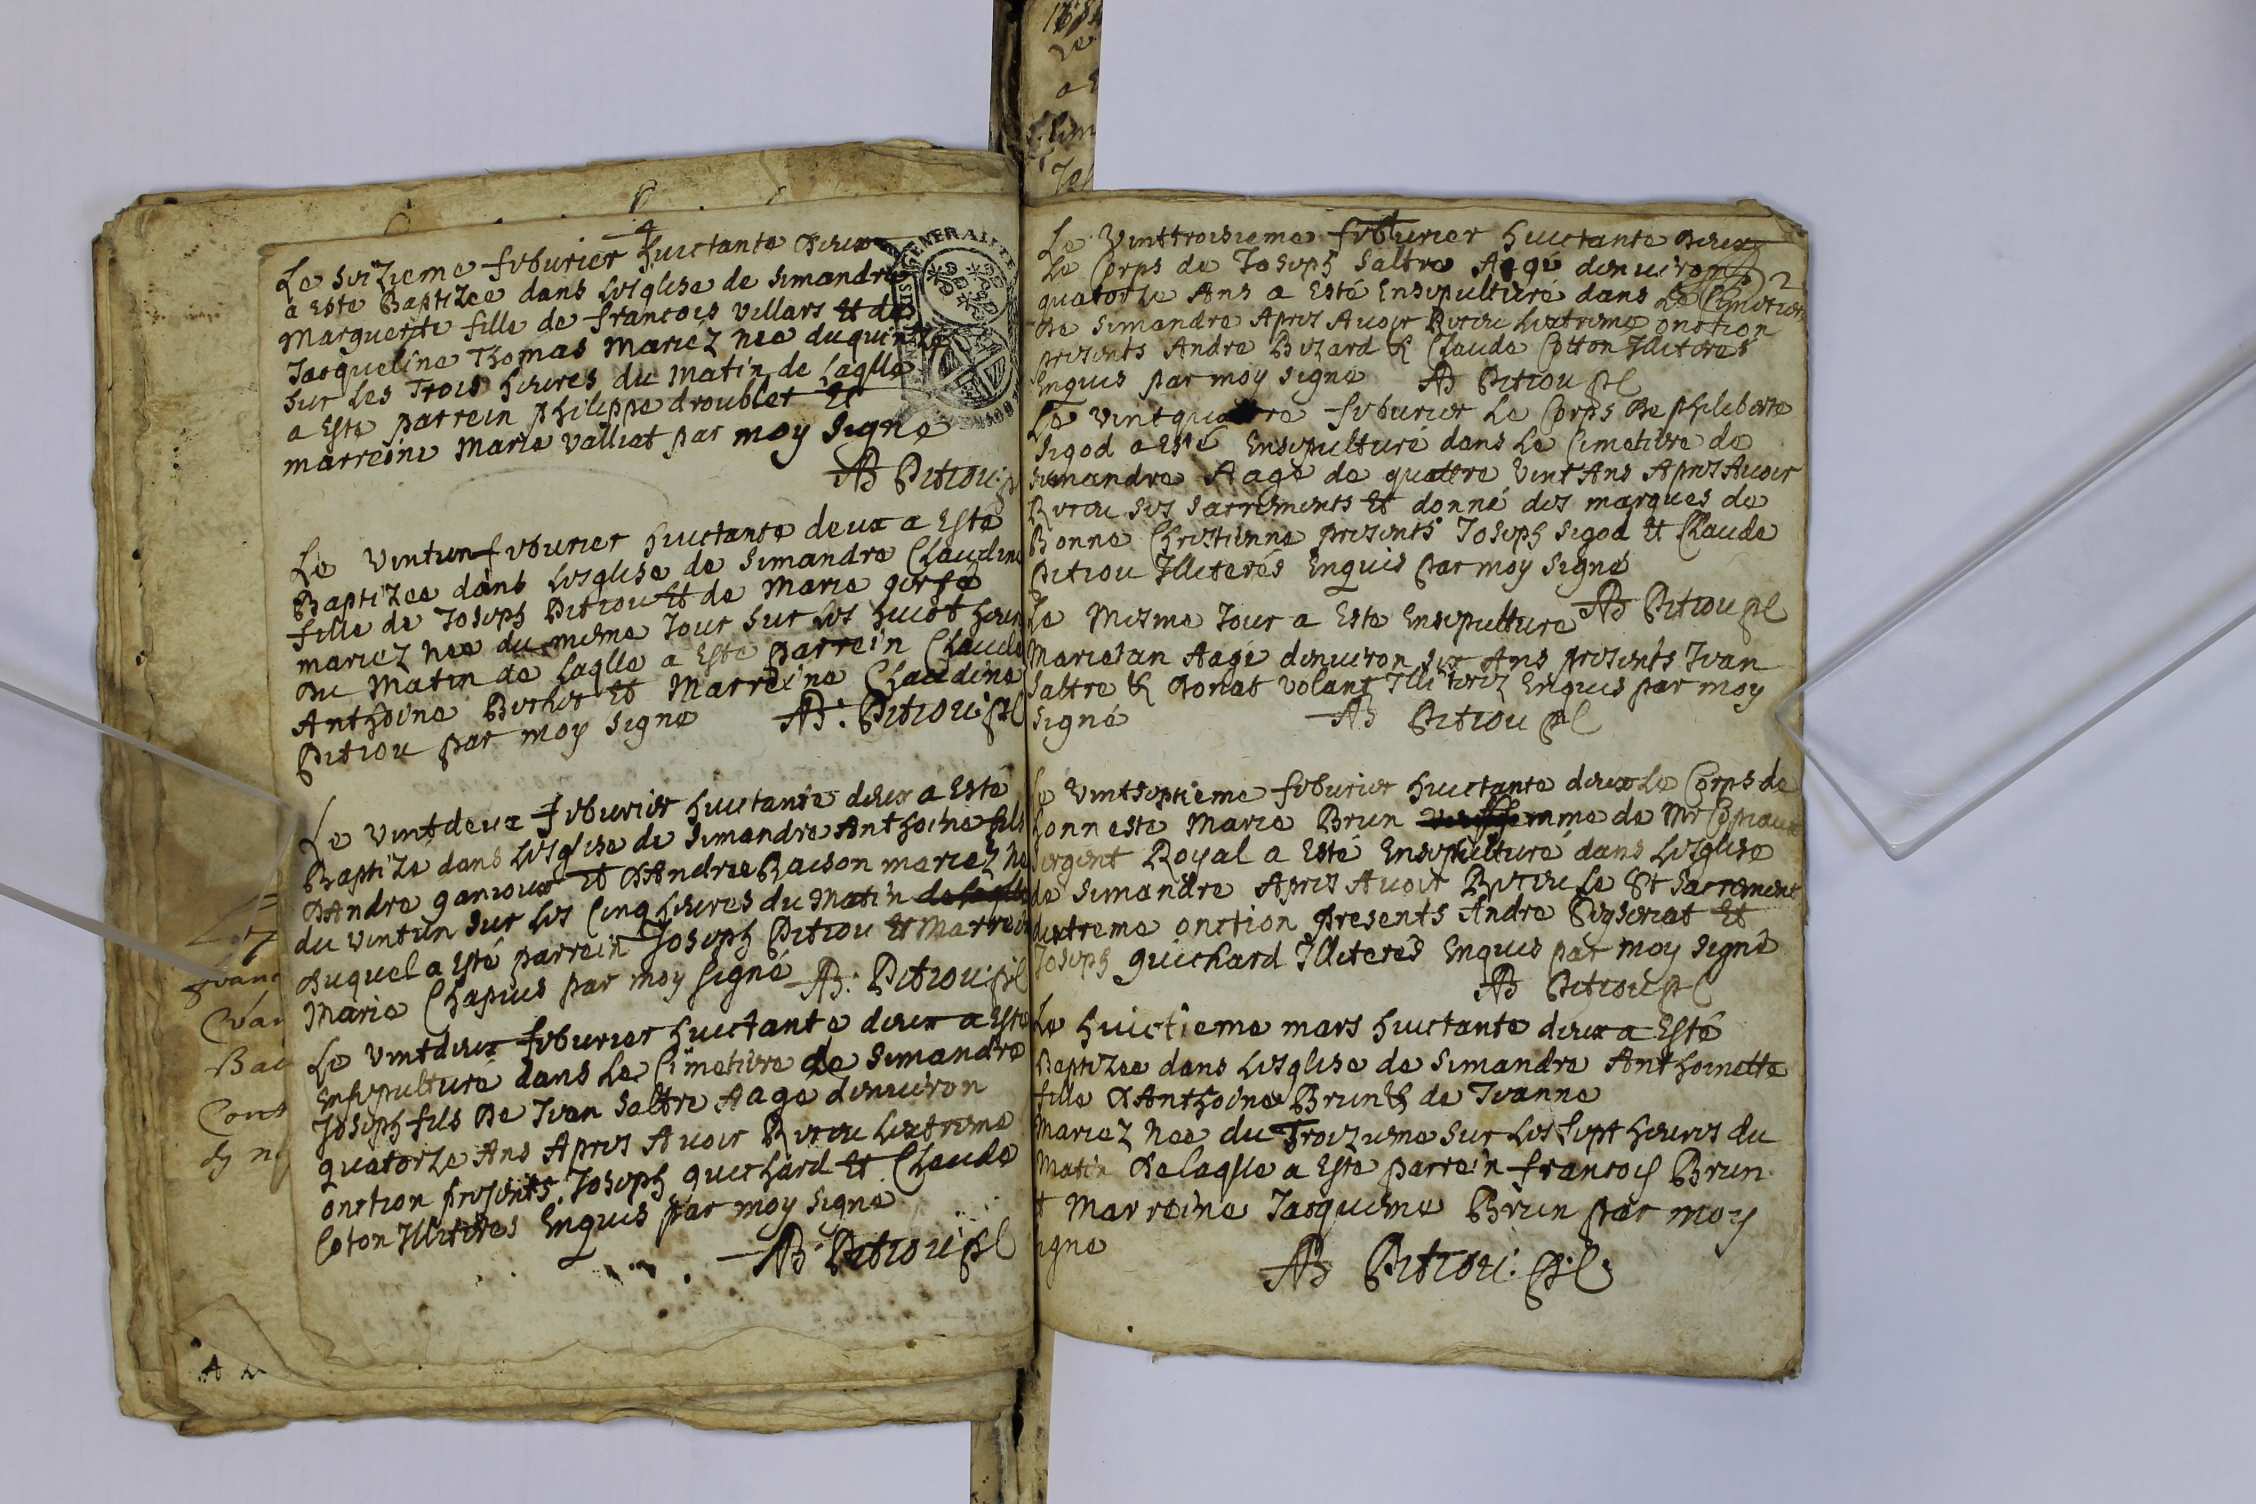 Le seizieme feburier huictante deux
a este Baptizee dans lesglise de Simandre
Marguerite fille de francois Villars et de
Jacqueline Thomas mariéz nee du quinze
sur les Trois heures du matin de laqlle
a este parrein philippe droublet Et
marreine Marie Valliat par moy signe
AB Petiou:
Le Vintun feburier huictante deux a Este
Baptizee dans lesglise de Simandre Claudine
fille de Joseph Petiou Et de Marie
mariez nee du mesme Jour sur les huict heur
du Matin de laqlle a Este parrein Claude
Anthoine Et Marreine Claudine
Petiou par moy signe AB: Petiou:
Le vintdeux feburier huictante deux a Esté
Baptize dans lesglise de Simandre Anthoine fils
dAndre Et dAndree Raison mariez ne
du vintun sur les Cinq heures du Matin
duquel a esté parrein Joseph Petiou Et Marrein
Marie Chapuis par moy signé AB: Petiou:
Le vintdeux feburier huictante deux a Este
Ensepulturé dans Le Cimetiere de Simandre
Joseph fils De Jean Saltre Aage denuiron
quatorze Ans Apres Auoir Receu Lextreme
onction presents Joseph guichard Et Claude
Coton Illiteres Enquis par moy signé
AB Petiou
Le Vinttroisieme feburier huictante deux
Le Corps de Joseph Saltre Aagé denuiron
2
quatorze Ans a Esté Ensepulturé dans Le Cimetiere
De Simandre Apres Auoir Receu Lextreme onction
presents Andre Bezard & Claude Cotton Illiteres
Enquis par moy signe AB Petiou
Le Vintquatre feburier Le Corps De philiberte
Sigod a Esté Ensepulturé dans Le Cimetiere de
Simandre Aagé de quattre Vint Ans Apres Auoir
Receu ses sacrements Et donné des marques de
Bonne Christienne presents Joseph Sigod Et Claude
Petiou Illiterés Enquis par moy signé
AB Petiou
Le Mesme Jour a Este Ensepulture
Aagé denuiron six Ans presents Jean
Saltre & Donat Volant Illiterez Enquis par moy
signé AB Petiou
Le Vintseptieme feburier huictante deux Le Corps de
honneste Marie Brun femme de Mr
sergent Royal a Esté Ensepulturé dans Lesglise
de Simandre Apres Auoir Receu Le St Sacrement
dextreme onction presents Andre Et
Joseph guichard Illiterés Enquis par moy signé
AB Petiou
Le huictieme mars huictante deux a Esté
Baptizee dans Lesglise de Simandre Anthoinette
fille dAnthoine Brun & de Jeanne
Mariez nee du Troizieme sur les sept heures du
Matin De laqlle a Este parrein francois Brun
Et Marreine Jacqueme Brun par moy
signe
AB Petiou: